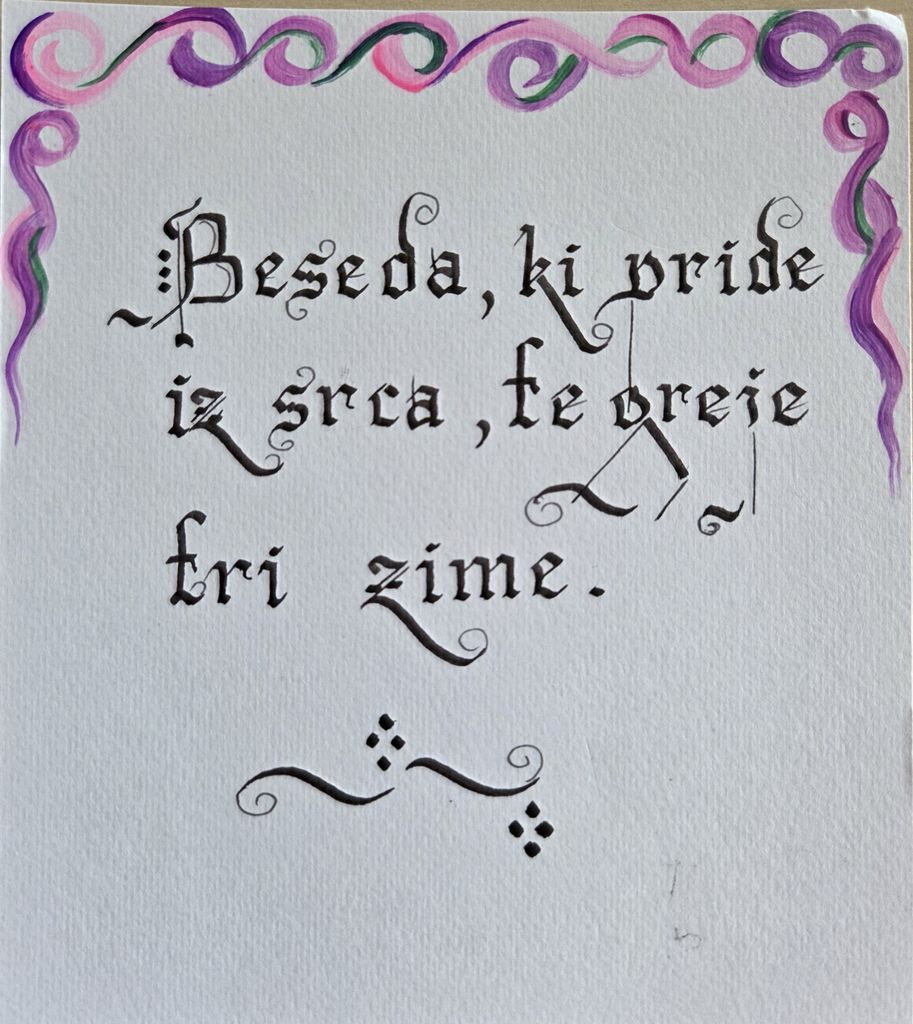 Beseda, ki pride
iz srca, te greje
tri zime.